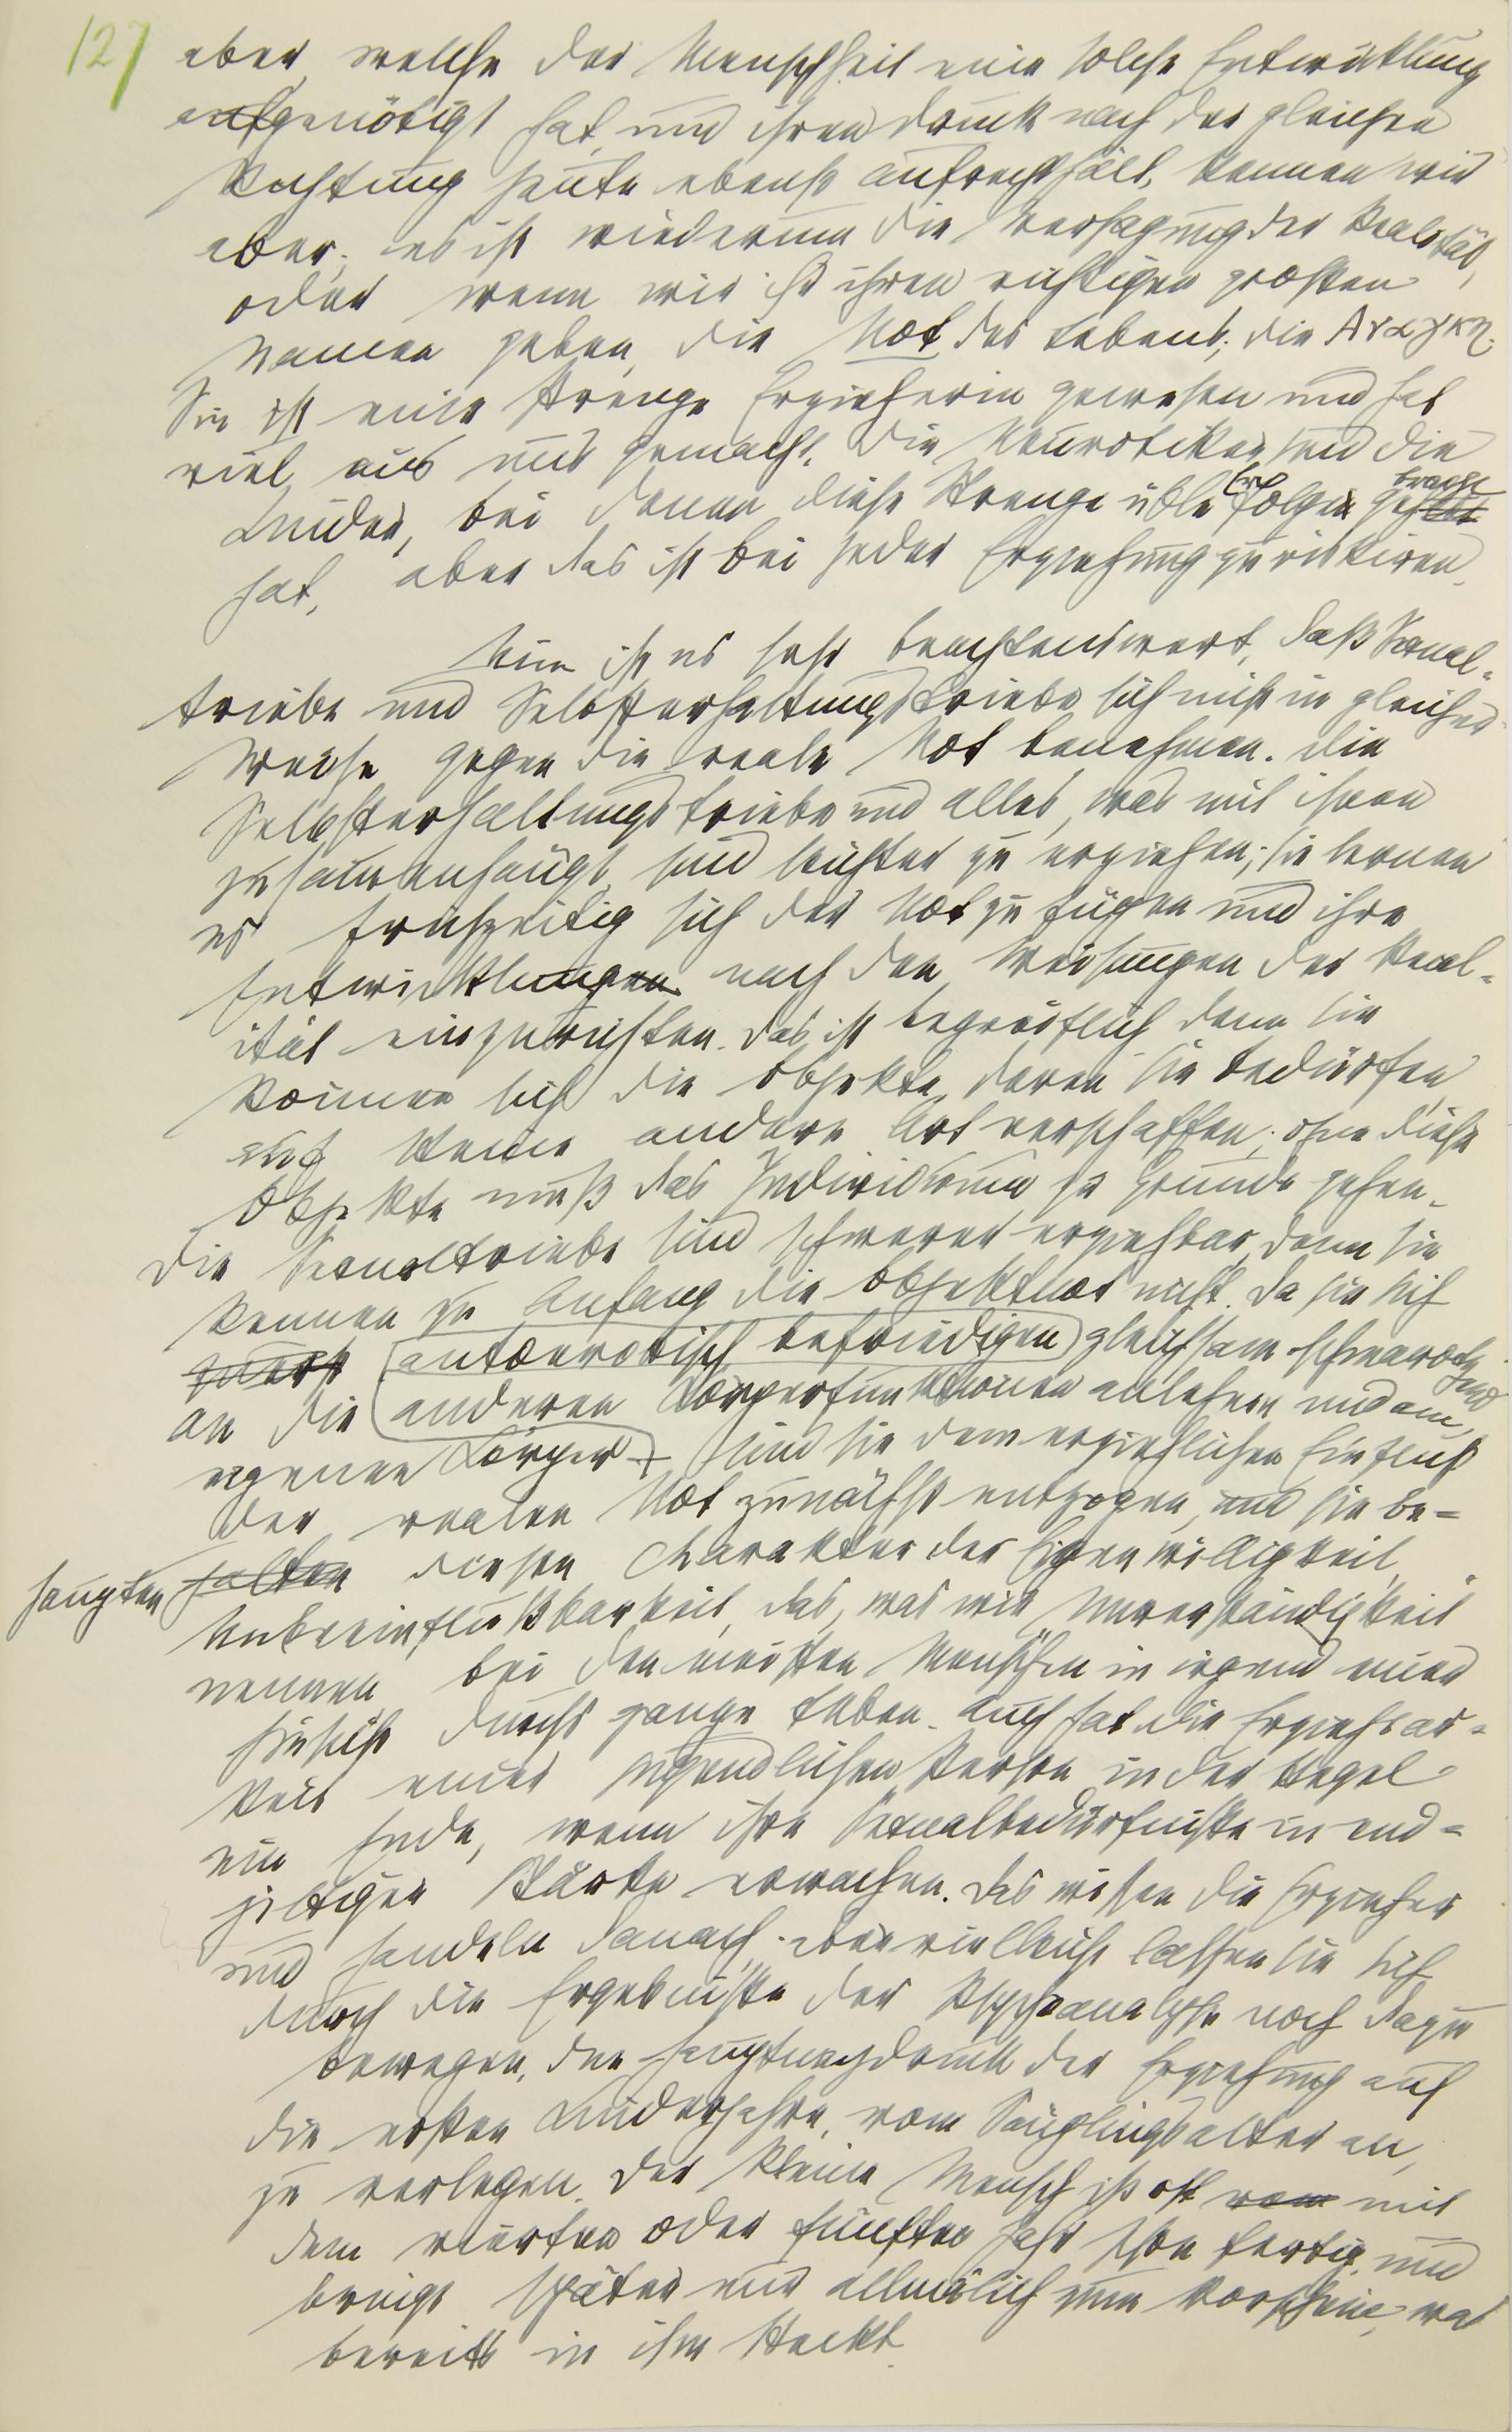 127
aber, welche der Menschheit eine solche Entwicklung
aufgenötigt hat und ihren Druck nach der gleichen
Richtung heute ebenso aufrechthält, kennen wir
aber; es ist wiederum die Versagung der Realität,
oder wenn wir ihr ihren richtigen großen
Namen geben, die Not des Lebens; die Ανάγκη.
Sie ist eine strenge Erzieherin gewesen und hat
viel aus uns gemacht. Die Neurotiker sind die
Kinder, bei denen diese Strenge üble Erfolge gebracht
hat, aber das ist bei jeder Erziehung zu riskiren.
Nun ist es sehr beachtenswert, daß Sexual-
triebe und Selbsterhaltungstriebe sich nicht in gleicher
Weise gegen die reale Not benehmen. Die
Selbsterhaltungstriebe und alles, was mit ihnen
zusammenhängt, sind leichter zu erziehen; sie lernen
es frühzeitig sich der Not zu fügen und ihre
Entwicklungen nach den Weisungen der Real-
ität einzurichten. Das ist begreiflich denn sie
können sich die Objekte, deren sie bedürfen
auf keine andere Art verschaffen; ohne diese
Objekte muß das Individuum zu Grunde gehen.
Die Sexualtriebe sind schwerer erziehbar, denn sie
kennen zu Anfang die Objektnot nicht. Da sie sich
zuerst autoerotisch befriedigen gleichsam schmarotzend
an die anderen Körperfunktionen anlehnen und am
eigenen Körper sind sie dem erziehlichen Einfluß
der realen Not zunächst entzogen, und sie be-
haupten halten diesen Charakter der Eigenwilligkeit,
Unbeeinflußbarkeit, das, was wir "Unverständigkeit"
nennen bei den meisten Menschen in irgend einer
Hinsicht durchs ganze Leben. Auch hat die Erziehbar-
keit einer jugendlichen Person in der Regel
ein Ende, wenn ihre Sexualbedürfnisse in end-
giltiger Stärke erwachen. Das wissen die Erzieher
und handeln danach; aber vielleicht lassen sie sich
durch die Ergebnisse der Psychoanalyse noch dazu
bewegen, den Hauptnachdruck der Erziehung auf
die ersten Kinderjahre, vom Säuglingsalter an,
zu verlegen. Der kleine Mensch ist oft mit
dem vierten oder fünften Jahr schon fertig und
bringt später nur allmälich zum Vorschein, was
bereits in ihm steckt.